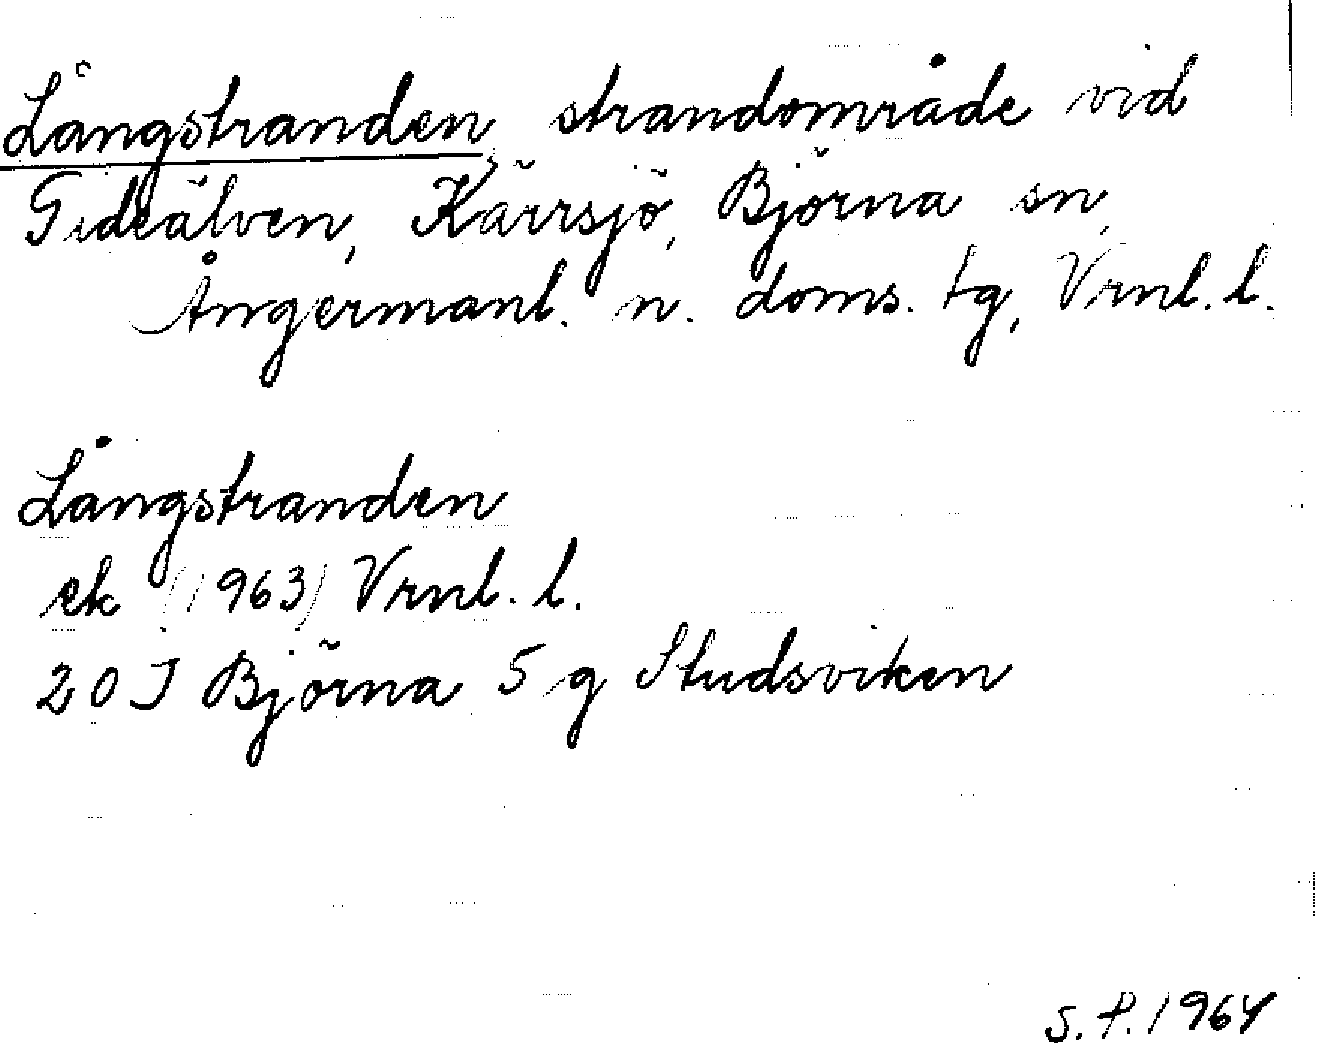 Långstranden, strandområde vid
Gideälven, Kärrsjö, Björna sn,
Ångermanl. n. doms. tg, Vrnl. l.
Långstranden
ek (1963) Vrnl. l.
20 J Björna 5 g Studsviken
S. P. 1964